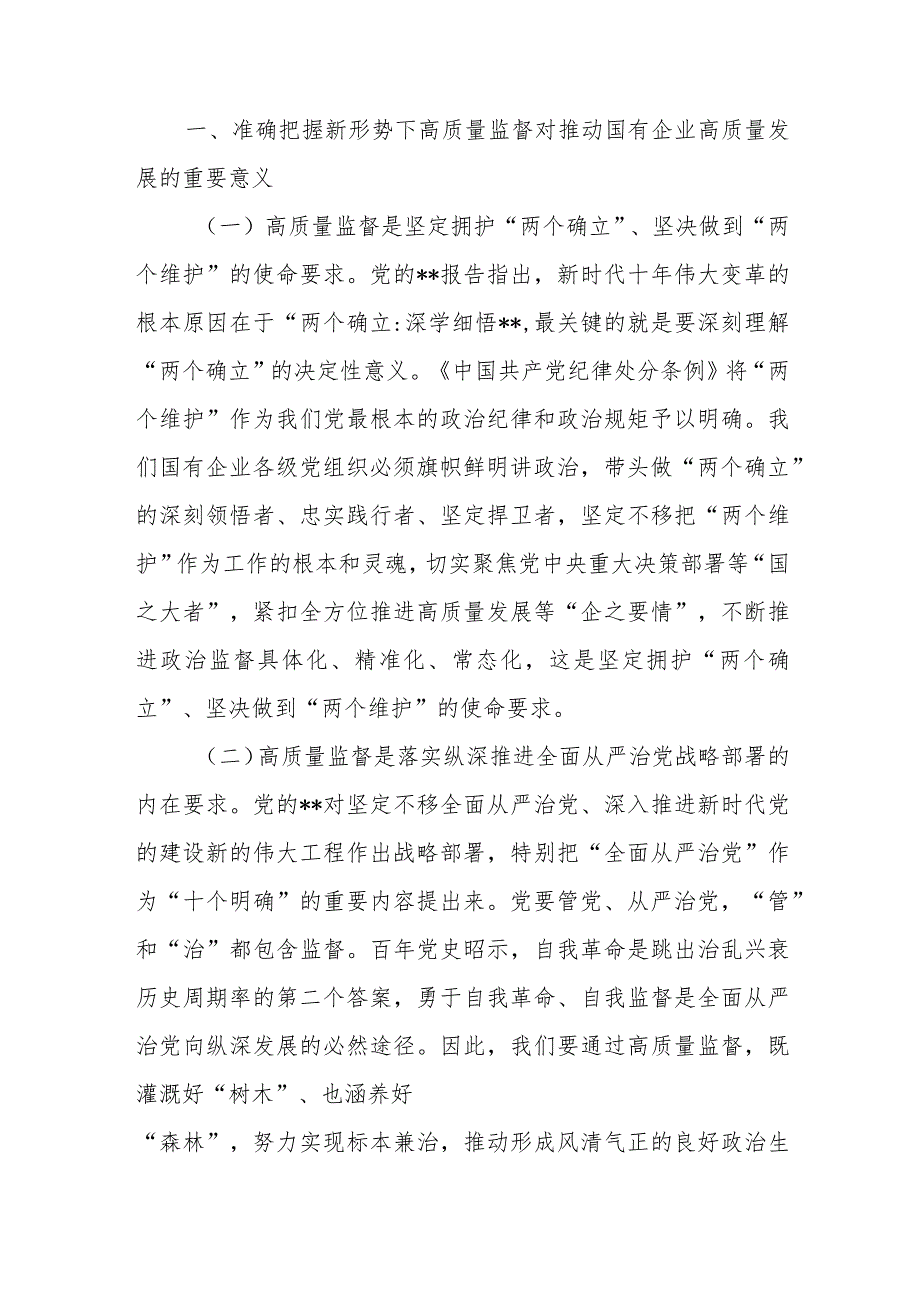 一、准确把握新形势下高质量监督对推动国有企业高质量发
展的重要意义
（一）高质量监督是坚定拥护“两个确立”、坚决做到“两
个维护”的使命要求。党的**报告指出，新时代十年伟大变革的
根本原因在于“两个确立:深学细悟**,最关键的就是要深刻理解
“两个确立”的决定性意义。《中国共产党纪律处分条例》将“两
个维护”作为我们党最根本的政治纪律和政治规矩予以明确。我
们国有企业各级党组织必须旗帜鲜明讲政治，带头做“两个确立”
的深刻领悟者、忠实践行者、坚定捍卫者，坚定不移把“两个维
护”作为工作的根本和灵魂，切实聚焦党中央重大决策部署等“国
之大者”，紧扣全方位推进高质量发展等“企之要情”，不断推
进政治监督具体化、精准化、常态化，这是坚定拥护“两个确
立”、坚决做到“两个维护”的使命要求。
（二）高质量监督是落实纵深推进全面从严治党战略部署的
内在要求。党的**对坚定不移全面从严治党、深入推进新时代党
的建设新的伟大工程作出战略部署，特别把“全面从严治党”作
为“十个明确”的重要内容提出来。党要管党、从严治党，“管”
和“治”都包含监督。百年党史昭示，自我革命是跳出治乱兴衰
历史周期率的第二个答案，勇于自我革命、自我监督是全面从严
治党向纵深发展的必然途径。因此，我们要通过高质量监督，既
灌溉好“树木”、也涵养好
“森林”，努力实现标本兼治，推动形成风清气正的良好政治生